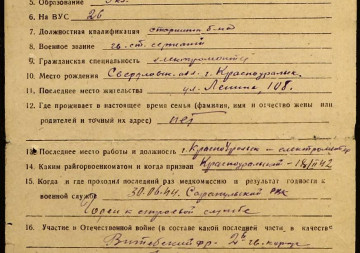 5. Образование
6. На ВУС 26
7. Должностная квалификация старшина б-на
8. Военное звание гв. ст. сержант
9. Гражданская специальность электромонтер
10. Место рождения Свердловск. обл. г. Красноуральск
11. Последнее место жительства ул. Ленина, 108.
12. Где проживает в настоящее время семья (фамилия, имя и отчество жены или
родителей и точный их адрес) нет
13. Последнее место работы и должность г. Красноуральск электромонтер
14. Каким райгорвоенкоматом и когда призван Красноуральский
15. Когда и где проходил последний раз медкомиссию и результат годности к
военной службе 30.06.44. Сарапульский РВК
Годен к строевой службе
16. Участие в Отечественной войне (в составе какой последней части, в качестве
Витебский фр. 2й гв. корпус